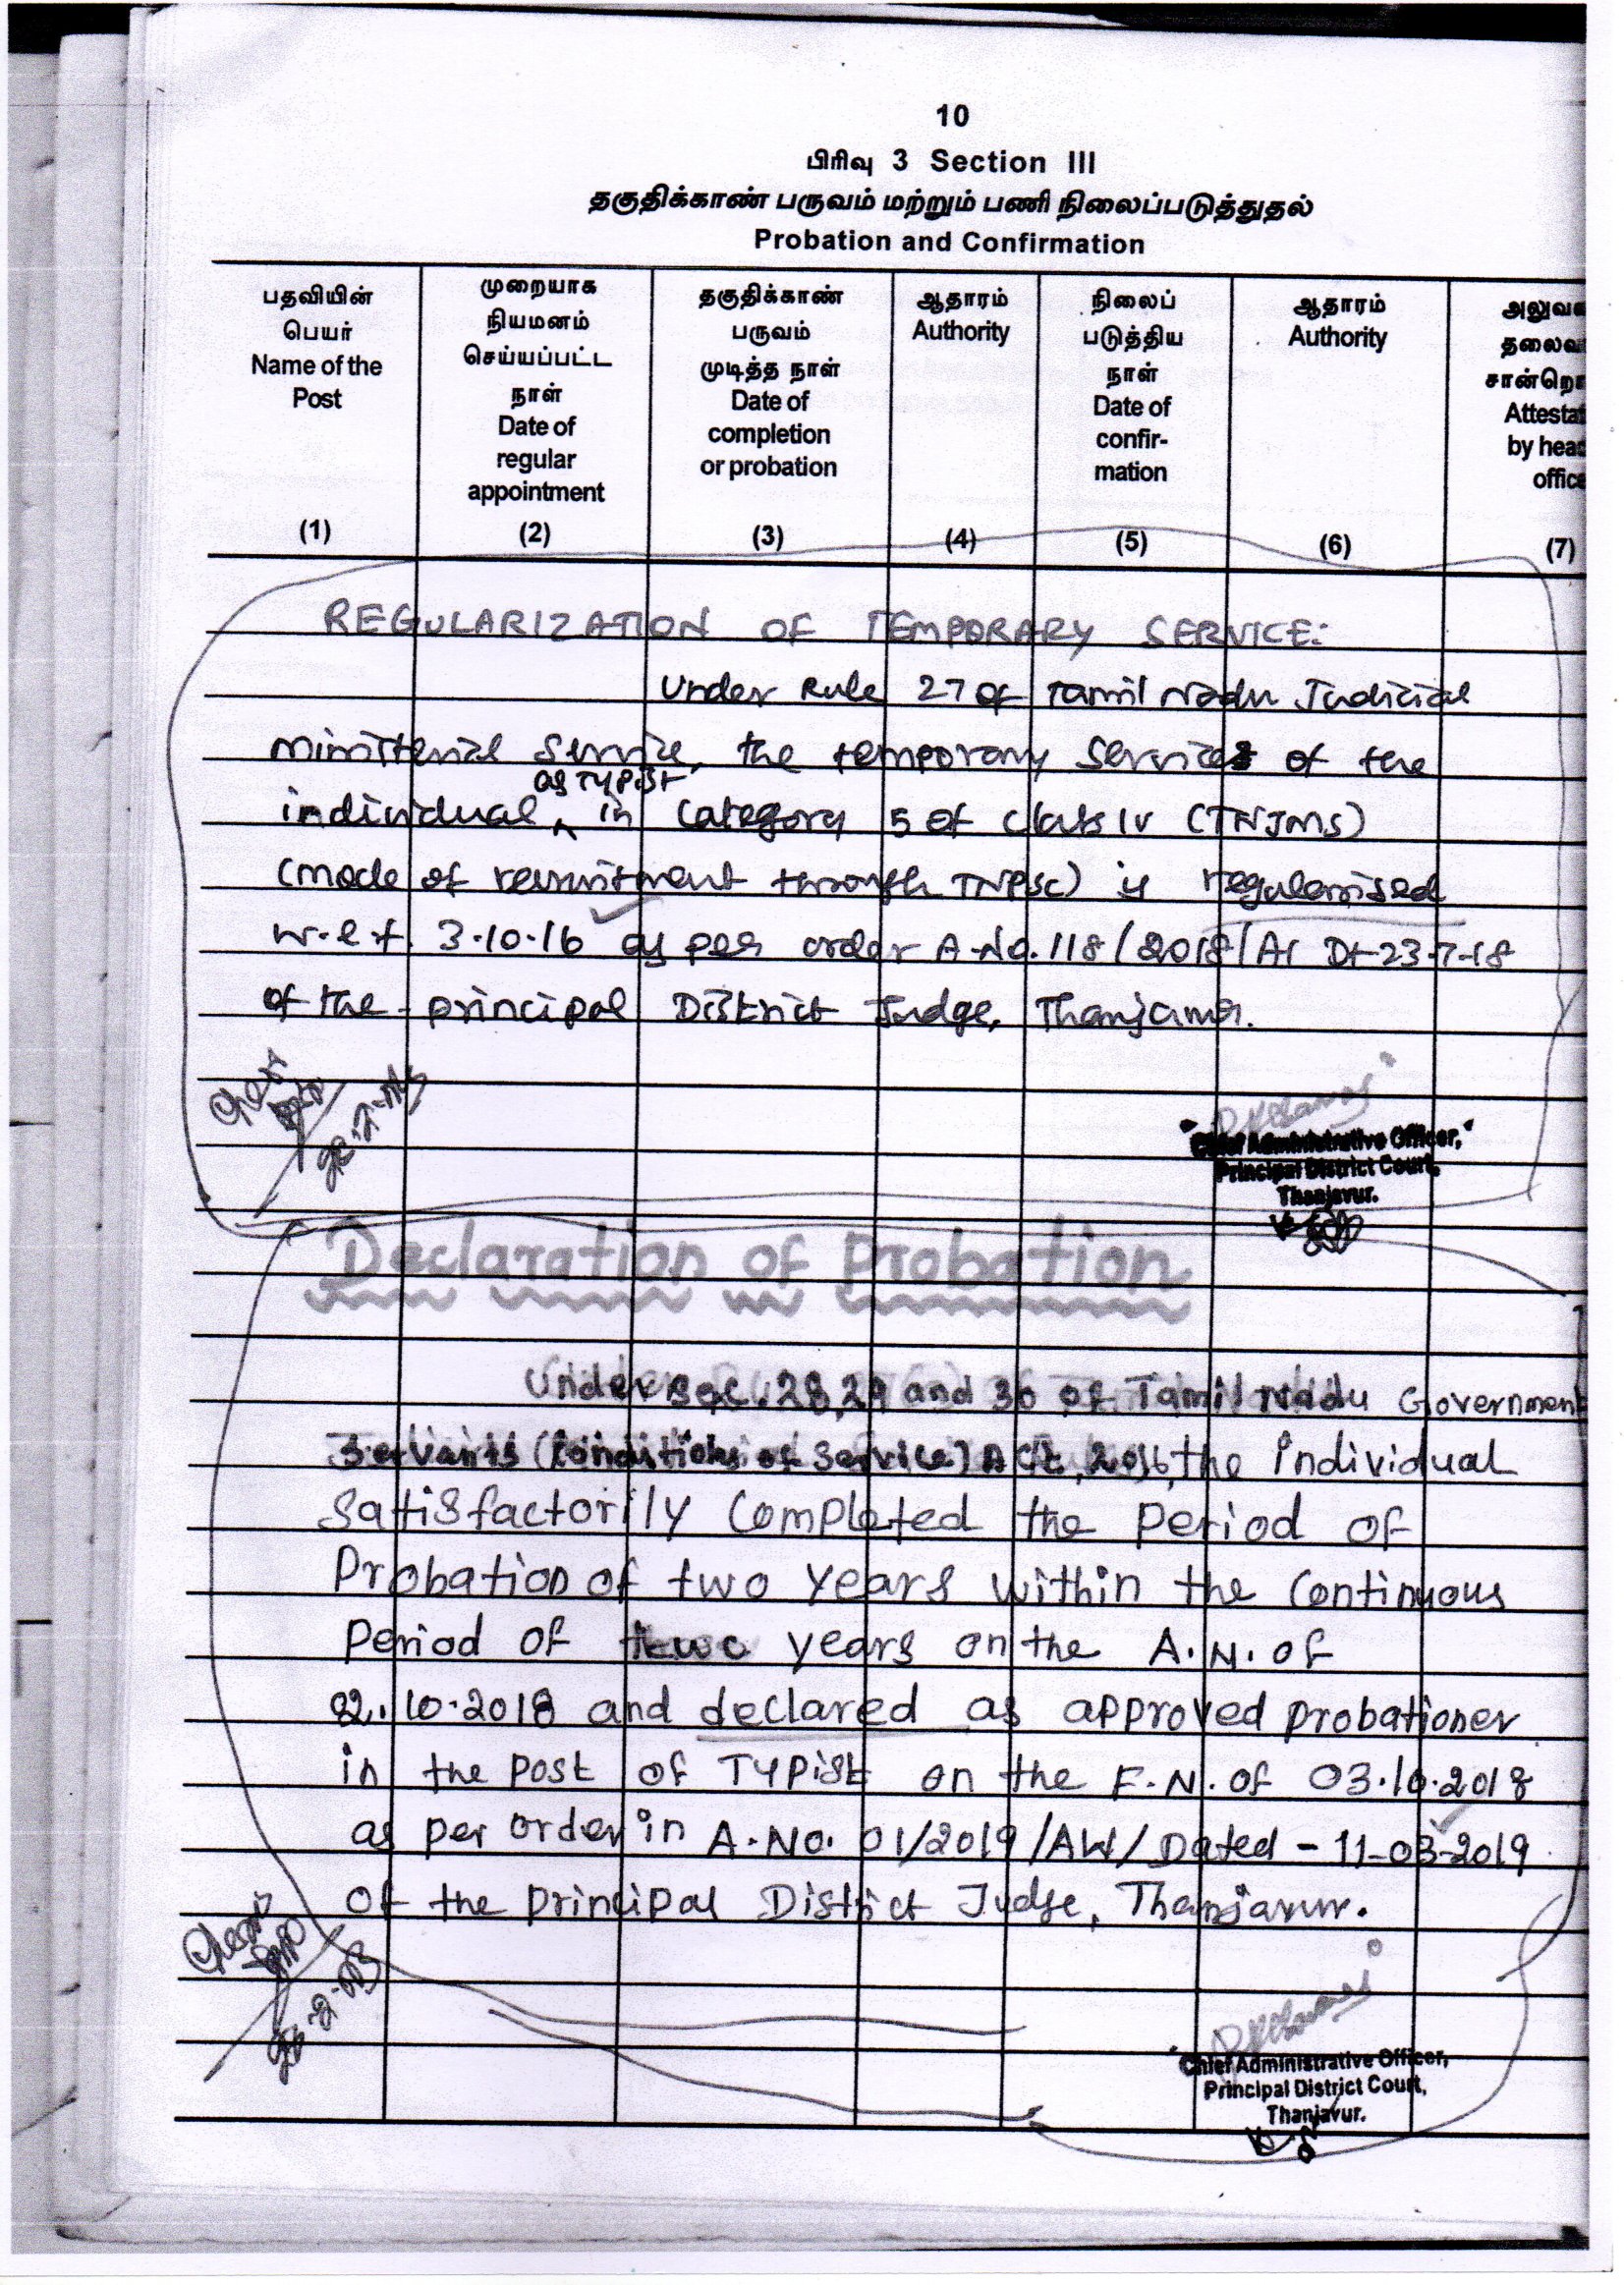 10
பிரிவு 3 Section III
தகுதிக்காண் பருவம் மற்றும் பணி நிலைப்படுத்துதல்
Probation and Confirmation
பதவியின்
பெயர்
Name of the
Post
(1)
முறையாக
நியமனம்
செய்யப்பட்ட
நாள்
Date of
regular
appointment
(2)
தகுதிக்காண்
பருவம்
முடித்த நாள்
Date of
completion
or probation
(3)
ஆதாரம்
Authority
(4)
நிலைப்
படுத்திய
நாள்
Date of
confir-
mation
(5)
ஆதாரம்
Authority
(6)
அலுவ
தலைவ
சான்றொ
Attestat
by head
office
(7)
REGULARIZATION OF TEMPORARY SERVICE:
Under Rule 27 of Tamil Nadu Judicial
Ministerial Service, the temporary services of the
as TYPIST
individual in Category 5 of class IV (TNJMS)
(mode of recruitment through TNPSC) is regularised
w.e.f. 3.10.16 as per order A.No.118/2018/A1 Dt-23-7-18
of the principal District Judge, Thanjavur.
Chief Administrative Officer,
Principal District Court,
Thanjavur.
Declaration of Probation
Under Sec.28,29 and 30 of Tamil Nadu Government
Servants (Conditions of Service) Act, 2016, the individual
Satisfactorily Completed the Period of
Probation of two years within the Continuous
Period of two years on the A.N. of
02.10.2018 and declared as approved probationer
in the post of TYPist on the F.N. of 03.10.2018
as per order in A.No. 01/2019/AW/ Dated - 11-03-2019
of the Principal District Judge, Thanjavur.
Chief Administrative Officer,
Principal District Court,
Thanjavur.